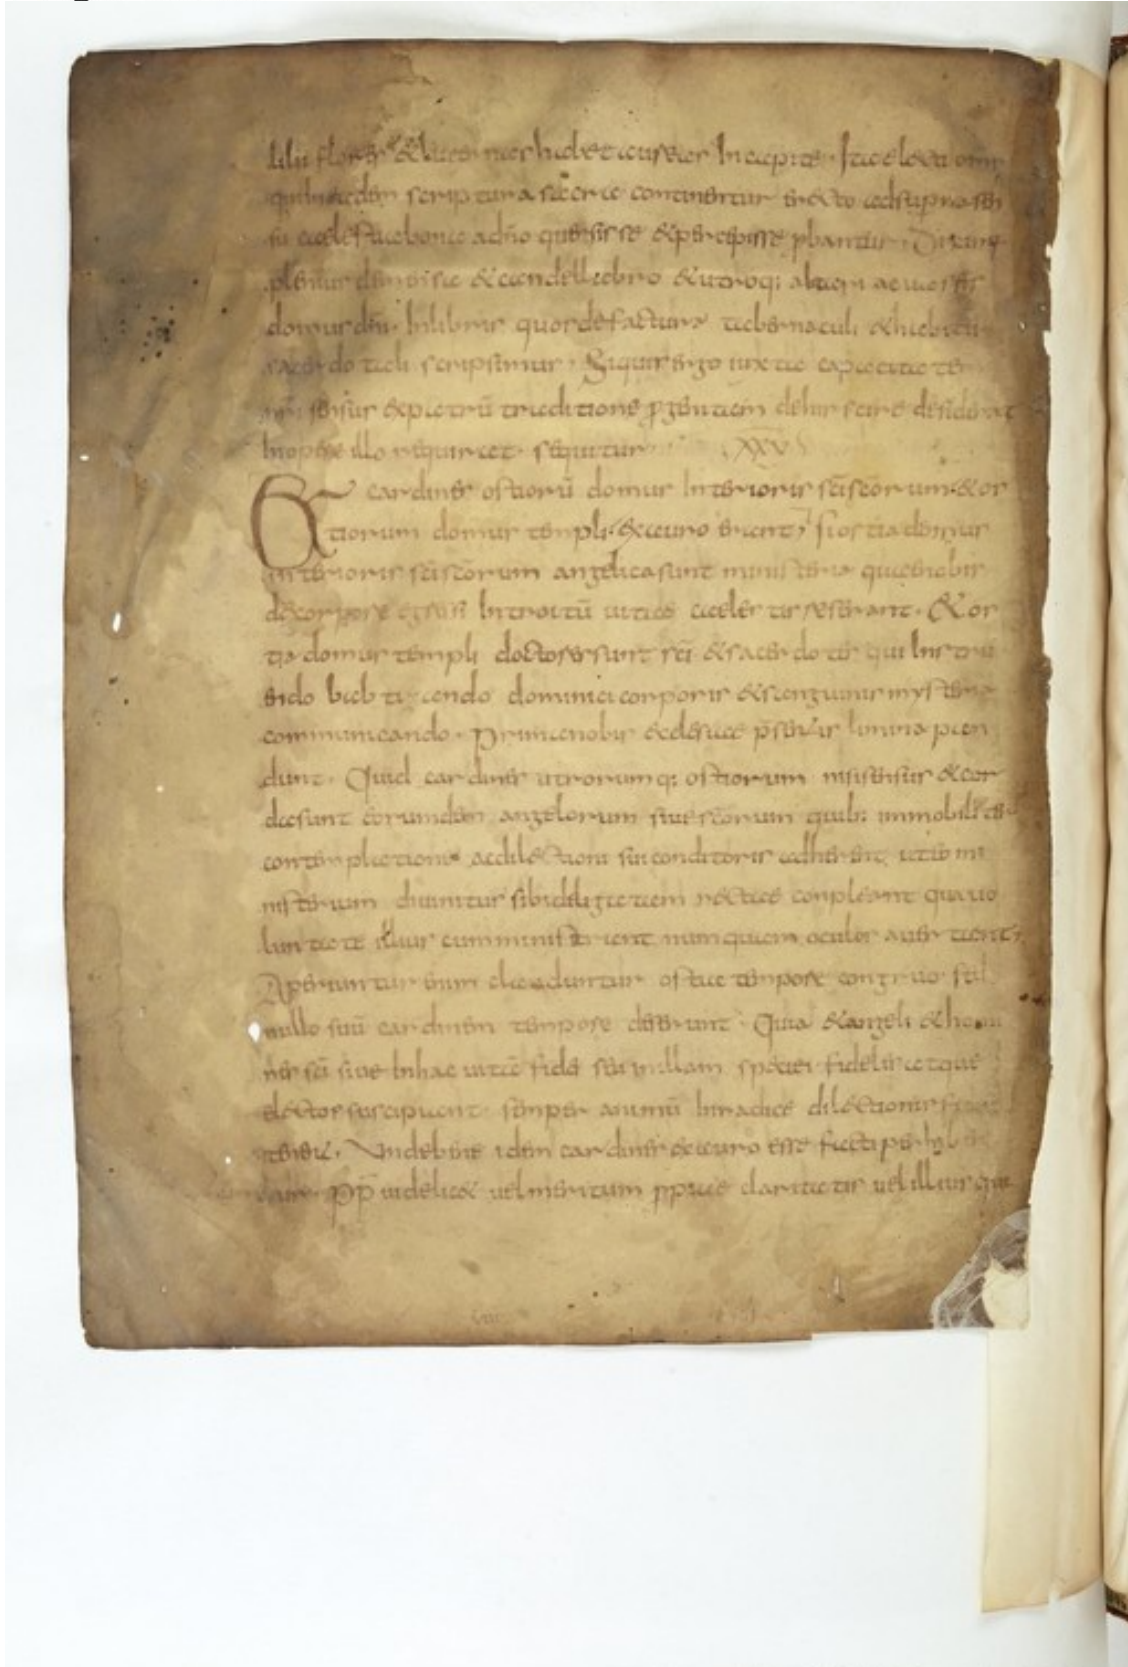 lilii flores & luces mox habet aureos In capite. Ita electi omnes
qui In eadem scriptura sacra continentur erecto ad superna sen
su caelestia bona a dño quaesisse & percepisse pbantur. Diximus
plenius de mensa & candellabro & utroq; altari ac uasis
domus dñi. In libris quos de factura tabernaculi & habitu
sacerdotali scripsimus. Siquis ergo iuxta capacitatem
nri sensus & patrũ traditione pgentiem de his scire desiderat
In opere illo requirat. sequitur XXV
Et cardines ostiorũ domus Interioris sci scõrum. & os
tiorum domus templi. & auro erant; si ostia domus
interioris sci scõrum angelica sunt ministeria quae nobis
de corpore egressi Introitũ uitae caelestis reserant. & os
tia domus templi doctores sunt sci & sacerdotes qui Instru
endo babtizando dominici corporis & sanguinis mysteria
communicando. Prima nobis ecclesiae psentis limina pan
dunt. Quid cardines utrorumq; ostiorum nisi sensus & cor
da sunt eorumdem angelorum siue scõrum quib; immobiliter
contemplationi ac dilectioni sui conditoris adherent ut eo mi
nisterium diuinitus sibi deligatam recte conpleant qua uo
luntate illius cum ministrant numquam oculos auertant;
Aperiuntur enim clauduntur ostia tempore congruo sed
nullo suũ cardinem tempore deserunt. Quia & angeli & homi
nes sci siue In hac uita fide seu in illam speciei fidelis atque
electos suscipiant. semper animũ In radice dilectionis fixum
tenent. Unde bene idem cardines ex auro esse facti perhiben
tur. Pp uidelicet uel meritum ppriae claritatis uel illius quae